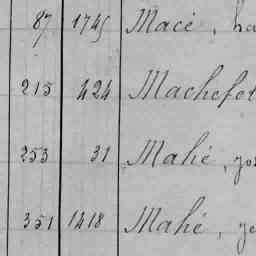 87 1745 Macé,
215 424 Machefe
253 31 Mahé,
351 1418 Mahé,